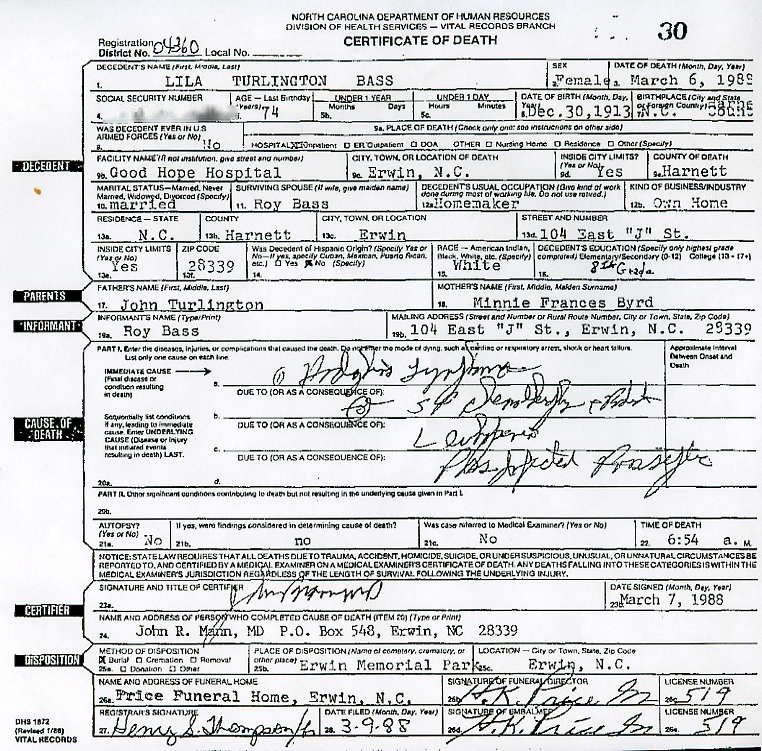 NORTH CAROLINA DEPARTMENT OF HUMAN RESOURCES
DIVISION OF HEALTH SERVICES – VITAL RECORDS BRANCH
CERTIFICATE OF DEATH
30
Registration
District No. 04360 Local No.
DECEDENT
DECEDENT'S NAME (First, Middle, Last) SEX DATE OF DEATH (Month, Day, Year)
1. LILA TURLINGTON BASS 2. Female 3. March 6, 1988
SOCIAL SECURITY NUMBER AGE – Last Birthday (Years) UNDER 1 YEAR UNDER 1 DAY DATE OF BIRTH (Month, Day, Year) BIRTHPLACE (City and State or Foreign Country)
Months Days Hours Minutes
4. 74 5b. 5c. 6. Dec. 30, 1913 7. N.C.
WAS DECEDENT EVER IN U.S. ARMED FORCES (Yes or No) 9a. PLACE OF DEATH (Check only one: see instructions on other side)
8. No HOSPITAL: Inpatient ER/Outpatient DOA OTHER: Nursing Home Residence Other (Specify)
FACILITY NAME (If not institution, give street and number) CITY, TOWN, OR LOCATION OF DEATH INSIDE CITY LIMITS? (Yes or No) COUNTY OF DEATH
9b. Good Hope Hospital 9c. Erwin, N.C. 9d. Yes 9e. Harnett
MARITAL STATUS – Married, Never Married, Widowed, Divorced (Specify) SURVIVING SPOUSE (If wife, give maiden name) DECEDENT'S USUAL OCCUPATION (Give kind of work done during most of working life. Do not use retired.) KIND OF BUSINESS/INDUSTRY
10. married 11. Roy Bass 12a. Homemaker 12b. Own Home
RESIDENCE – STATE COUNTY CITY, TOWN, OR LOCATION STREET AND NUMBER
13a. N.C. 13b. Harnett 13c. Erwin 13d. 104 East "J" St.
INSIDE CITY LIMITS (Yes or No) ZIP CODE Was Decedent of Hispanic Origin? (Specify Yes or No – If yes, specify Cuban, Mexican, Puerto Rican, etc.) RACE – American Indian, Black, White, etc. (Specify) DECEDENT'S EDUCATION (Specify only highest grade completed) Elementary/Secondary (0-12) College (13 - (7+)
13e. Yes 13f. 28339 14. Yes No (Specify) 15. White 16. 8th Grade
PARENTS
FATHER'S NAME (First, Middle, Last) MOTHER'S NAME (First, Middle, Maiden Surname)
17. John Turlington 18. Minnie Frances Byrd
INFORMANT
INFORMANT'S NAME (Type/Print) MAILING ADDRESS (Street and Number or Rural Route Number, City or Town, State, Zip Code)
19a. Roy Bass 19b. 104 East "J" St., Erwin, N.C. 28339
CAUSE OF DEATH
PART I. Enter the diseases, injuries, or complications that caused the death. Do not enter the mode of dying, such as cardiac or respiratory arrest, shock or heart failure.
List only one cause on each line.
Approximate Interval Between Onset and Death
IMMEDIATE CAUSE (Final disease or condition resulting in death)
a. 1
DUE TO (OR AS A CONSEQUENCE OF):
Sequentially list conditions if any, leading to immediate cause. Enter UNDERLYING CAUSE (Disease or injury that initiated events resulting in death) LAST.
b. 2
DUE TO (OR AS A CONSEQUENCE OF):
c.
DUE TO (OR AS A CONSEQUENCE OF):
20a. d.
PART II. Other significant conditions contributing to death but not resulting in the underlying cause given in Part I.
20b.
AUTOPSY? (Yes or No) If yes, were findings considered in determining cause of death? Was case referred to Medical Examiner? (Yes or No) TIME OF DEATH
21a. No 21b. no 21c. No 22. 6:54 a. M
NOTICE: STATE LAW REQUIRES THAT ALL DEATHS DUE TO TRAUMA, ACCIDENT, HOMICIDE, SUICIDE, OR UNDER SUSPICIOUS, UNUSUAL, OR UNNATURAL CIRCUMSTANCES BE
REPORTED TO, AND CERTIFIED BY A MEDICAL EXAMINER ON A MEDICAL EXAMINER'S CERTIFICATE OF DEATH. ANY DEATHS FALLING INTO THESE CATEGORIES IS WITHIN THE
MEDICAL EXAMINER'S JURISDICTION REGARDLESS OF THE LENGTH OF SURVIVAL FOLLOWING THE UNDERLYING INJURY.
CERTIFIER
SIGNATURE AND TITLE OF CERTIFIER DATE SIGNED (Month, Day, Year)
23a. 23b. March 7, 1988
NAME AND ADDRESS OF PERSON WHO COMPLETED CAUSE OF DEATH (ITEM 20) (Type or Print)
24. John R. Mann, MD P.O. Box 548, Erwin, NC 28339
DISPOSITION
METHOD OF DISPOSITION PLACE OF DISPOSITION (Name of cemetery, crematory, or other place) LOCATION – City or Town, State, Zip Code
Burial Cremation Removal
25a. Donation Other 25b. Erwin Memorial Park 25c. Erwin, N.C.
NAME AND ADDRESS OF FUNERAL HOME SIGNATURE OF FUNERAL DIRECTOR LICENSE NUMBER
26a. Price Funeral Home, Erwin, N.C. 26b. 26c. 519
REGISTRAR'S SIGNATURE DATE FILED (Month, Day, Year) SIGNATURE OF EMBALMER LICENSE NUMBER
27. Henry S. Thompson 28. 3-9-88 26d. 26e. 519
DHS 1872
(Revised 1/88)
VITAL RECORDS